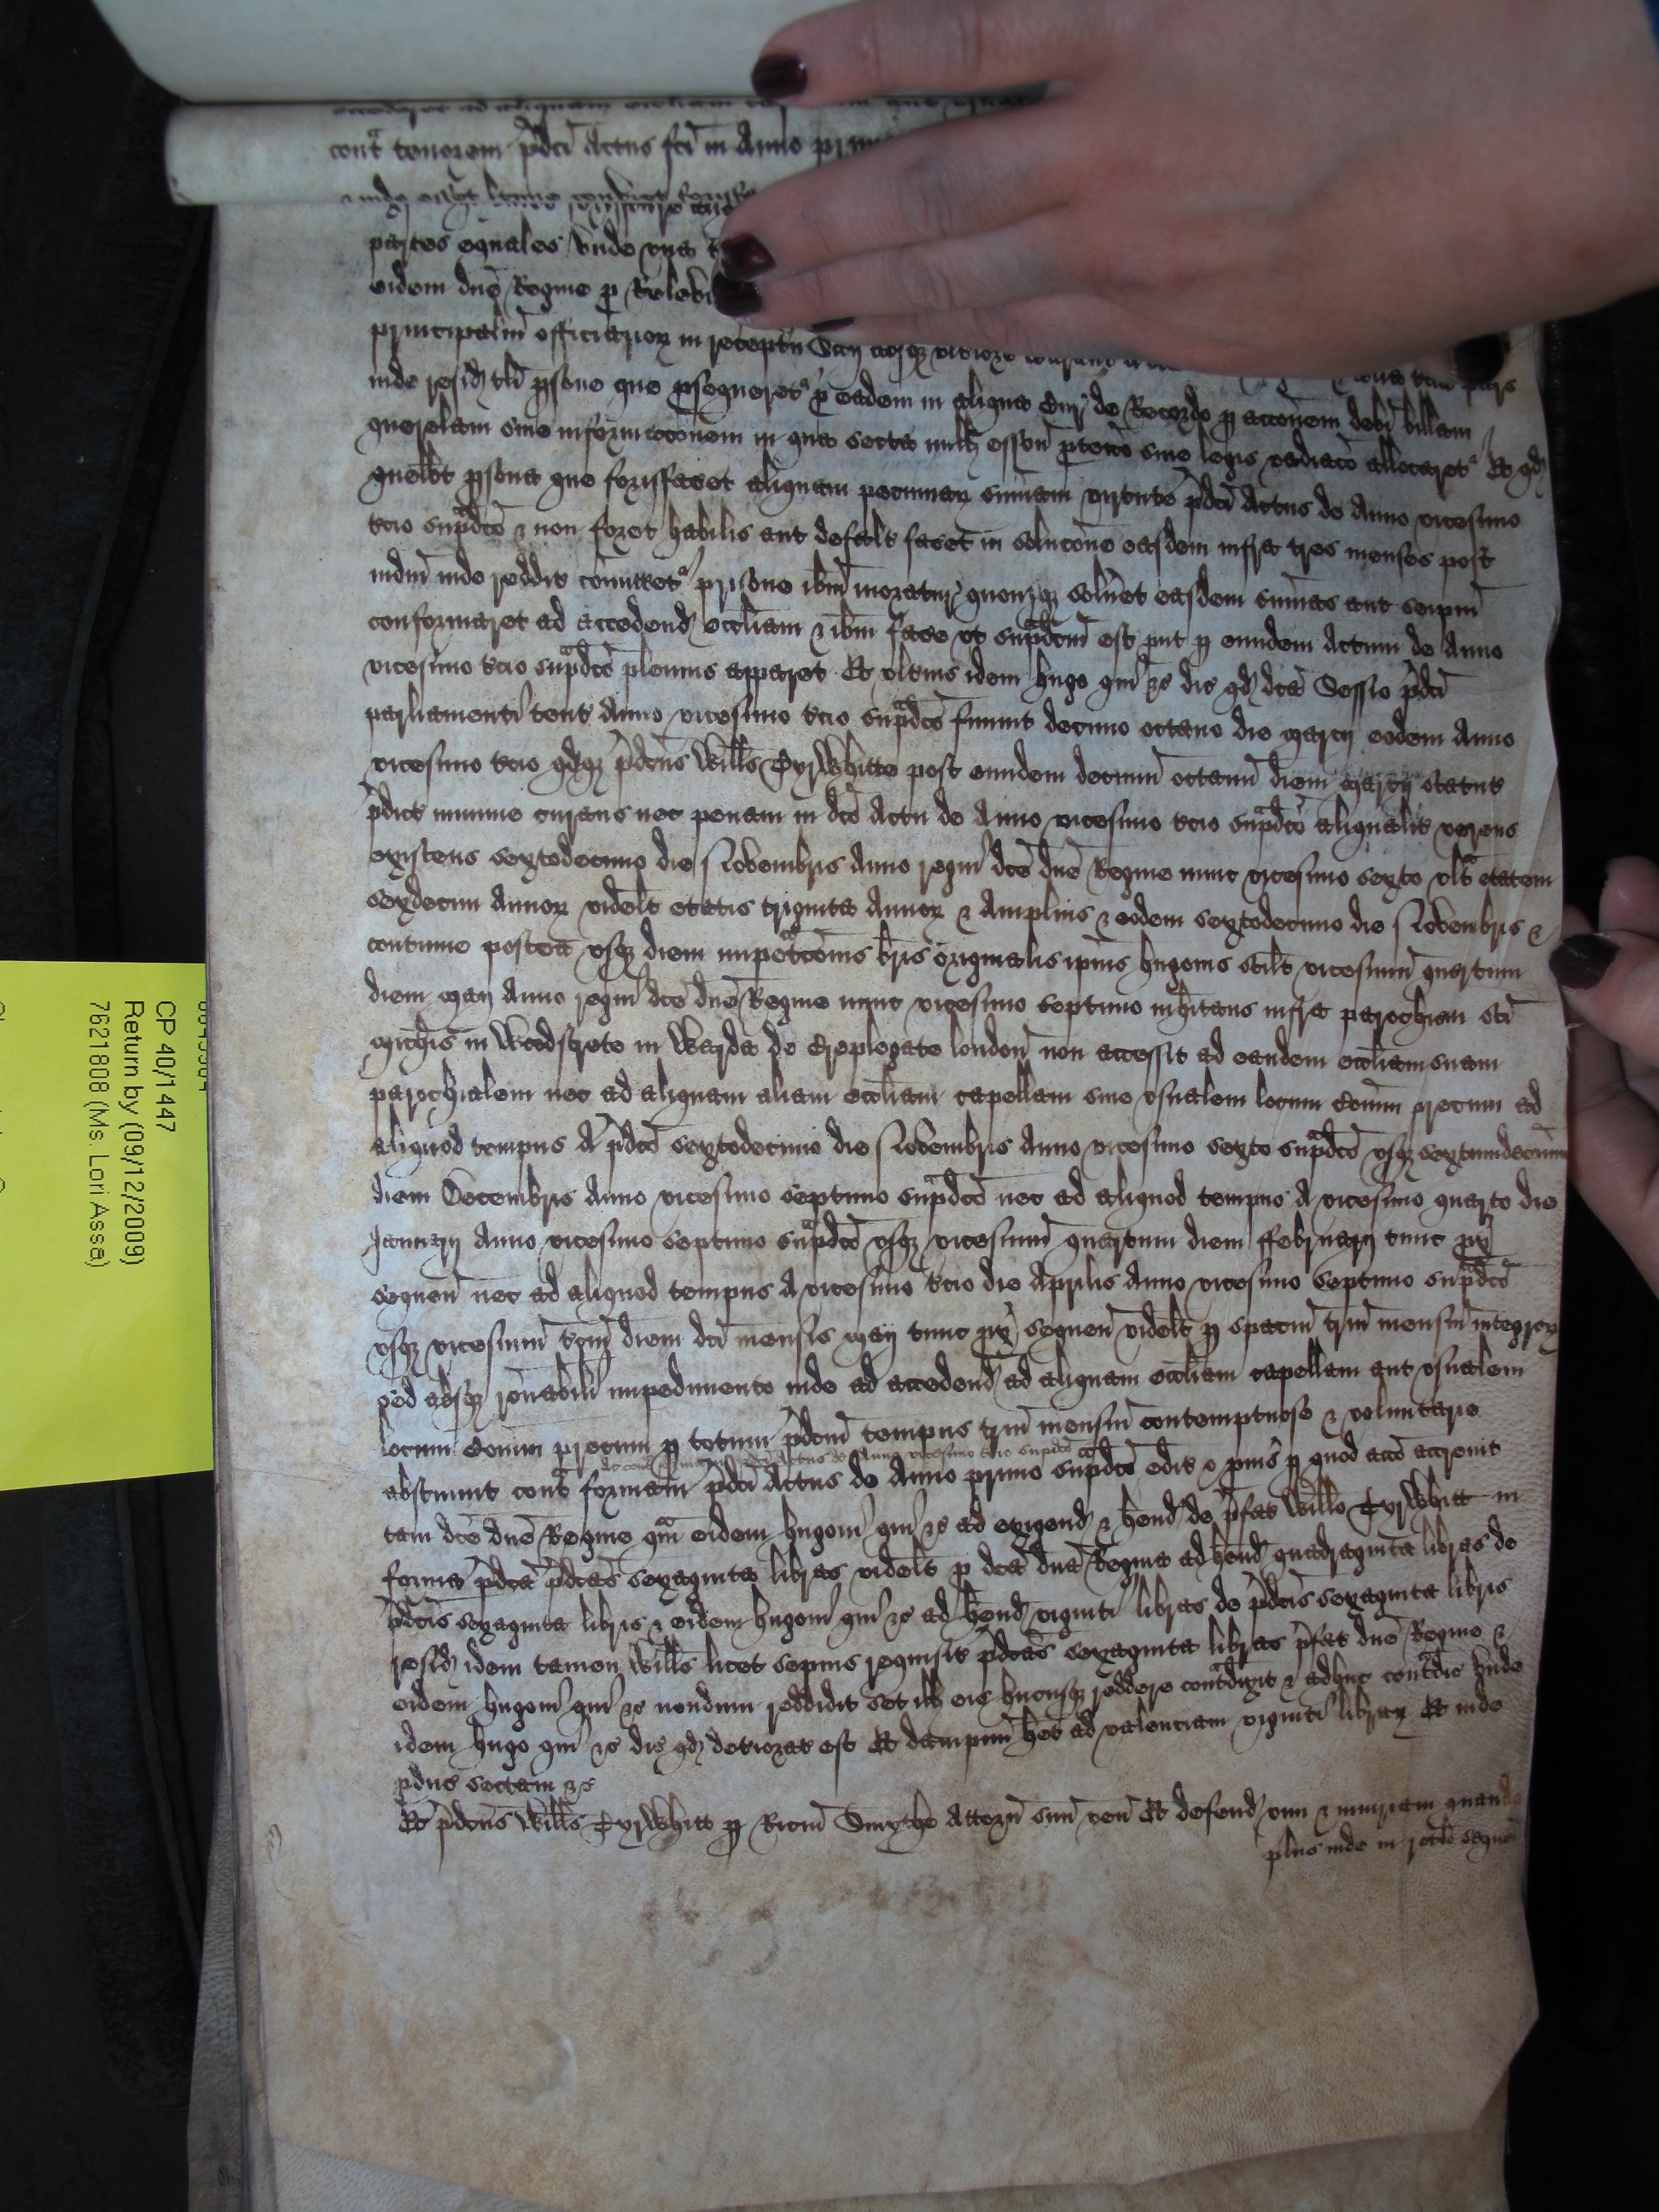 cont̄ tenorem p̄dc̄i Actus fc̄i in Anno
partes equales unde una
eidem dn̄e Regine p Relevi
principaliū officiarioꝝ in recept̄
inde resid̄ tl̄i p̱sone que p̱sequeret̄ p eadem in aliqua Cur̄ de Recordo p̱ acc̄onem deb̄i billam
querelam sive informac̄onem in qua secta null̄ esson̄ p̱tecc̄o sive legis vadiac̄o allocaret̄ Et qd̄
quel̄t p̱sona que forisfac̄et aliquam pecuniaꝝ sum̄am virtute p̄dc̄i Actus de Anno vicesimo
t̄cio sup̄dc̄o & non foret habilis aut defalt̄ fac̄et in soluc̄one eaꝝdem infra tres menses post
iudm̄ inde reddit̄ com̄itet̄ prisone ib̄m moratur̄ quousqꝫ solv̄et easdem sum̄as aut seip̄m
conformaret ad accedend̄ eccl̄iam & ib̄m fac̄e ut sup̄dc̄m est put p̱ eundem Actum de Anno
vicesimo t̄cio sup̄dc̄o plenius apparet Et ult̄ius idem Hugo qui &c dic̄ qd̄ dc̄a Sessio p̄dc̄i
parliamenti tent̄ Anno vicesimo t̄cio sup̄dc̄o finivit decimo octavo die marcij eodem Anno
vicesimo t̄cio qd̄qꝫ p̄dc̄us Will̄s Tyrwhitte post eundem decimū octavū diem marcij statut̄
p̄dict̄ minime curans nec penam in dc̄o Actu de Anno vicesimo t̄cio sup̄dc̄o aliqualit̄ verens
existens sextodecimo die Novembris Anno regni dc̄e dn̄e Regine nunc vicesimo sexto ult̄ etatem
sexdecim Annoꝝ videl̄t etatis triginta Annoꝝ & Amplius & eodem sextodecimo die Novembris &
continue postea usqꝫ diem impet̄c̄onis br̄is originalis ip̄ius Hugonis scil̄t vicesimū quartum
diem maij Anno regni dc̄e dn̄e Regine nunc vicesimo septimo inh̄itans infra parochiam sc̄i
mich̄is in Woodstrete in Warda de Creplegate london̄ non accessit ad eandem eccl̄iam suam
parochialem nec ad aliquam aliam eccl̄iam capellam sive usualem locum Com̄un̄ precum ad
aliquod tempus A p̄dc̄o sextodecimo die Novembris Anno vicesimo sexto sup̄dc̄o usqꝫ sextumdecimū
diem Decembris Anno vicesimo septimo sup̄dc̄o nec ad aliquod tempus A vicesimo quarto die
Januarij Anno vicesimo septimo sup̄dc̄o usqꝫ vicesimū quartum diem ffebruarij tunc px̄
sequen̄ nec ad aliquod tempus A vicesimo t̄cio die Aprilis Anno vicesimo septimo sup̄dc̄o
usqꝫ vicesimū t̄ciū diem dc̄i mensis maij tunc px̄ sequen̄ videl̄t p̱ spaciū triū mensiū integroꝝ
sed absqꝫ rōnabili impedimento inde ad accedend̄ ad aliquam eccl̄iam capellam aut usualem
locum Com̄un̄ precum p̱ totum p̄dc̄m tempus triū mensiū contemptuose & voluntarie
Actus de Anno vicesimo t̄cio sup̄dc̄o
abstinuit cont̄ formam p̄dc̄i Actus de Anno primo sup̄dc̄o edit̄ & p̱vis̄ p̱ quod acc̄o accrevit
tam dc̄e dn̄e Regine qm̄ eidem Hugoni qui &c ad exigend̄ & h̄end̄ de p̄fat̄ Will̄o Tyrwhitt in
forma p̄dc̄a p̄dc̄as sexaginta libras videl̄t p dc̄a dn̄a Regina ad h̄end̄ quadraginta libras de
p̄dc̄is sexaginta libris & eidem Hugoni qui &c ad h̄end̄ viginti libras de p̄dc̄is sexaginta libris
resid̄ idem tamen Will̄s licet sepius requisit̄ p̄dc̄as sexaginta libras p̄fat̄ dn̄e Regine &
eidem Hugoni qui &c nondum reddidit set ill̄ eis hucusqꝫ reddere cont̄dixit & adhuc cont̄dic̄ unde
idem Hugo qui &c dic̄ qd̄ det̄iorat̄ est Et dampnū h̄et ad valenciam viginti libraꝝ Et inde
pduc̄ sectam &c
Et p̄dc̄us Will̄s Tyrwhitt p̱ Ricm̄ Smythe Attorn̄ suū ven̄ Et defend̄ vim & iniuriam quando
plus inde in rotlo sequen̄
CP 40/1447
Return by (09/12/2009)
7621808 (Ms. Lori Assa)